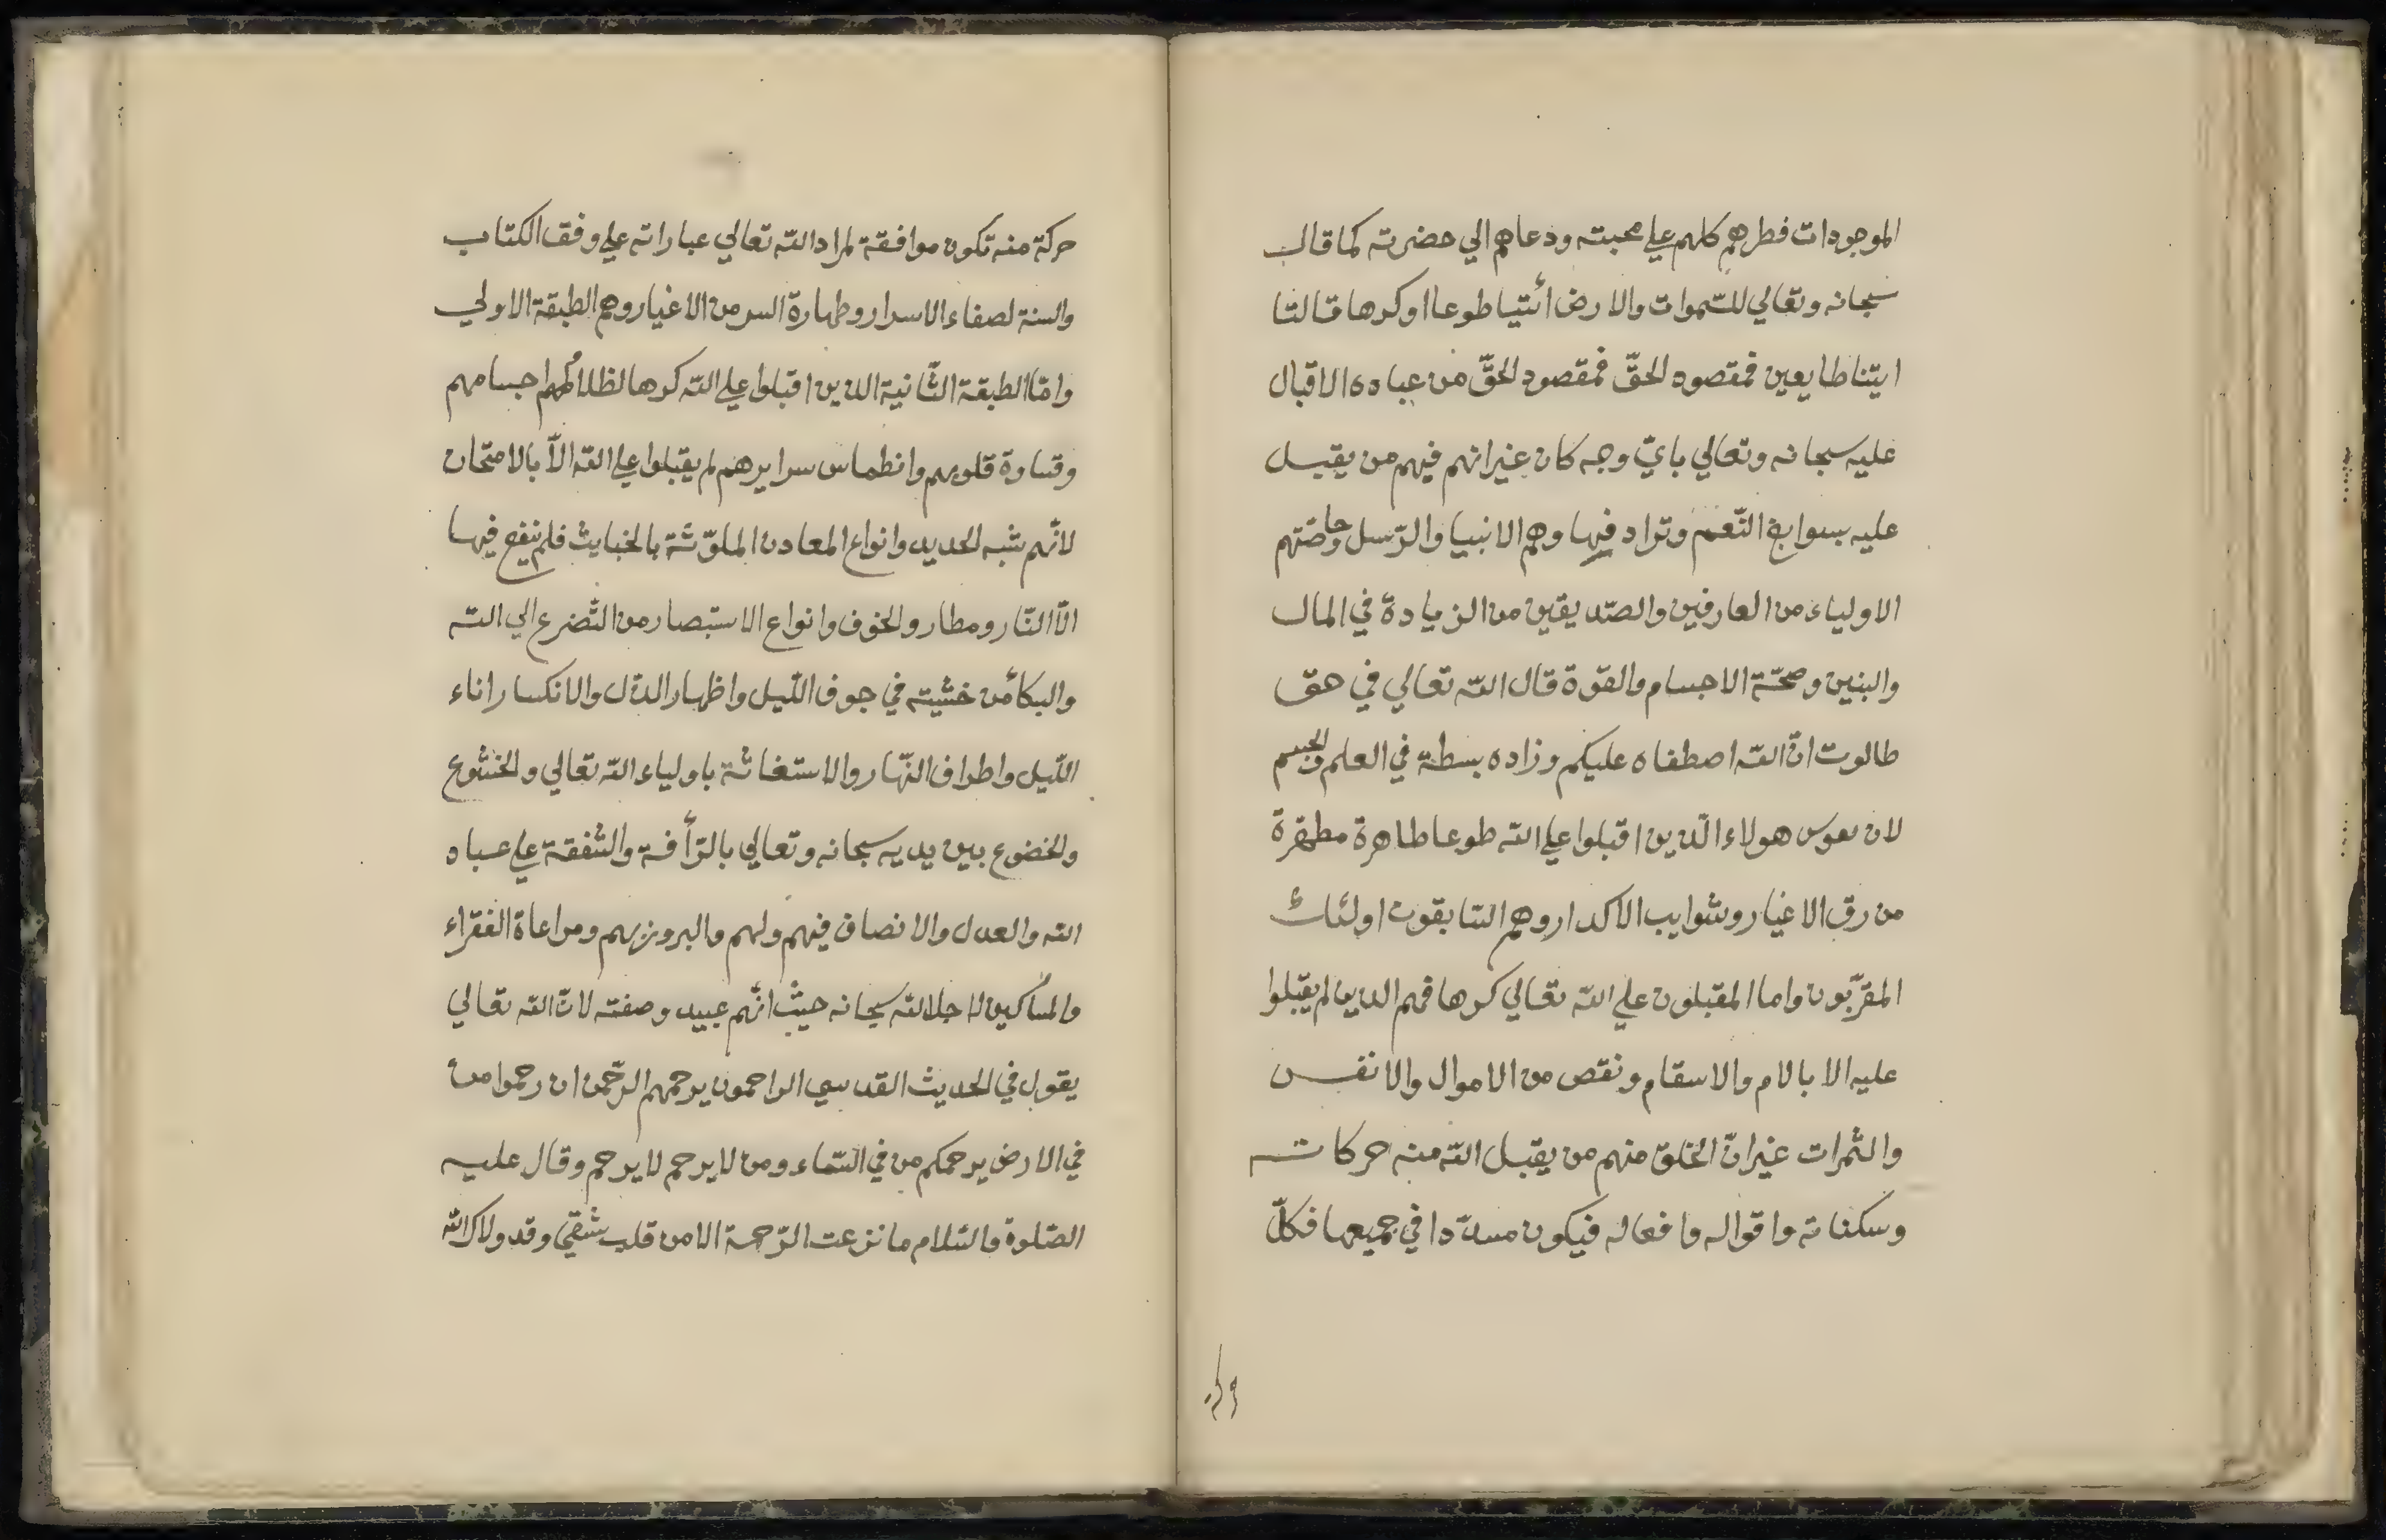 الموجودات فطرهم كلهم علي محبته ودعاهم الي حضرته كما قال
سبحانه وتعالي للسّموات والارض أئتيا طوعا اوكرها قالتا
ايتنا طايعين فمقصود الحقّ فمقصود الحقّ من عباده الاقبال
عليه سبحانه وتعالي بايّ وجه كان غير انهم فيهم من يقبل
عليه بسوابغ النّعم وترادفها وهم الانبيا والرّسل وخاصّتهم
الاولياء من العارفين والصّديقين من الزيادة في المال
والبنين وصحّة الاجسام والقوّة قال اللّه تعالي في حق
طالوت انّ اللّه اصطفاه عليكم وزاده بسطة في العلم والجسم
لان نفوس هولاء الّذين اقبلوا علي اللّه طوعا طاهرة مطهّرة
من رق الاغيار وشوايب الاكدار وهم السّابقون اولئك
المقرّبون واما المقبلون علي اللّه تعالي كرها فهم الذين لم يقبلوا
عليه الا بالام والاسقام ونقص من الاموال والانفس
والثمرات غير انّ الخلق منهم من يقبل اللّه منه حركاته
وسكناته واقواله وافعاله فيكون مسدّدا في جميعها فكلّ
حركة منه تكون موافقة لمراد اللّه تعالي عباراته علي وفق الكتاب
والسنة لصفاء الاسرار وطهارة السر من الاغيار وهم الطبقة الاولي
وامّا الطبقة الثّانية الذين اقبلوا علي اللّه كرها لظلام اجسامهم
وقساوة قلوبهم وانطماس سرايرهم لم يقبلوا علي اللّه الاّ بالامتحان
لانّهم شبه الحديد وانواع المعادن الملوّثة بالخبايث فلم ينفع فيها
الاّ النّار ومطار والخوف وانواع الاستبصار من التّضرع الي اللّه
والبكاء من خشيته في جوف اللّيل واظهار الذّل والانكسار اناء
اللّيل واطراف النّهار والاستغاثة باولياء اللّه تعالي والخشوع
والخضوع بين يديه سبحانه وتعالي بالرّأفة والشفقة علي عباد
اللّه والعدل والانصاف فيهم ولهم والبر بهم ومراعاة الفقراء
والمساكين لاجل اللّه سبحانه حيث انّهم عبيد وصفته لانّ اللّه تعالي
يقول في الحديث القدسي الراحمون يرحمهم الرّحمن ان رحموا من
في الارض يرحمكم من في السّماء ومن لا يرحم لا يرحم وقال عليه
الصّلوة والسّلام ما نزعت الرّحمة الا من قلب شقيّ وقد ولاك اللّه